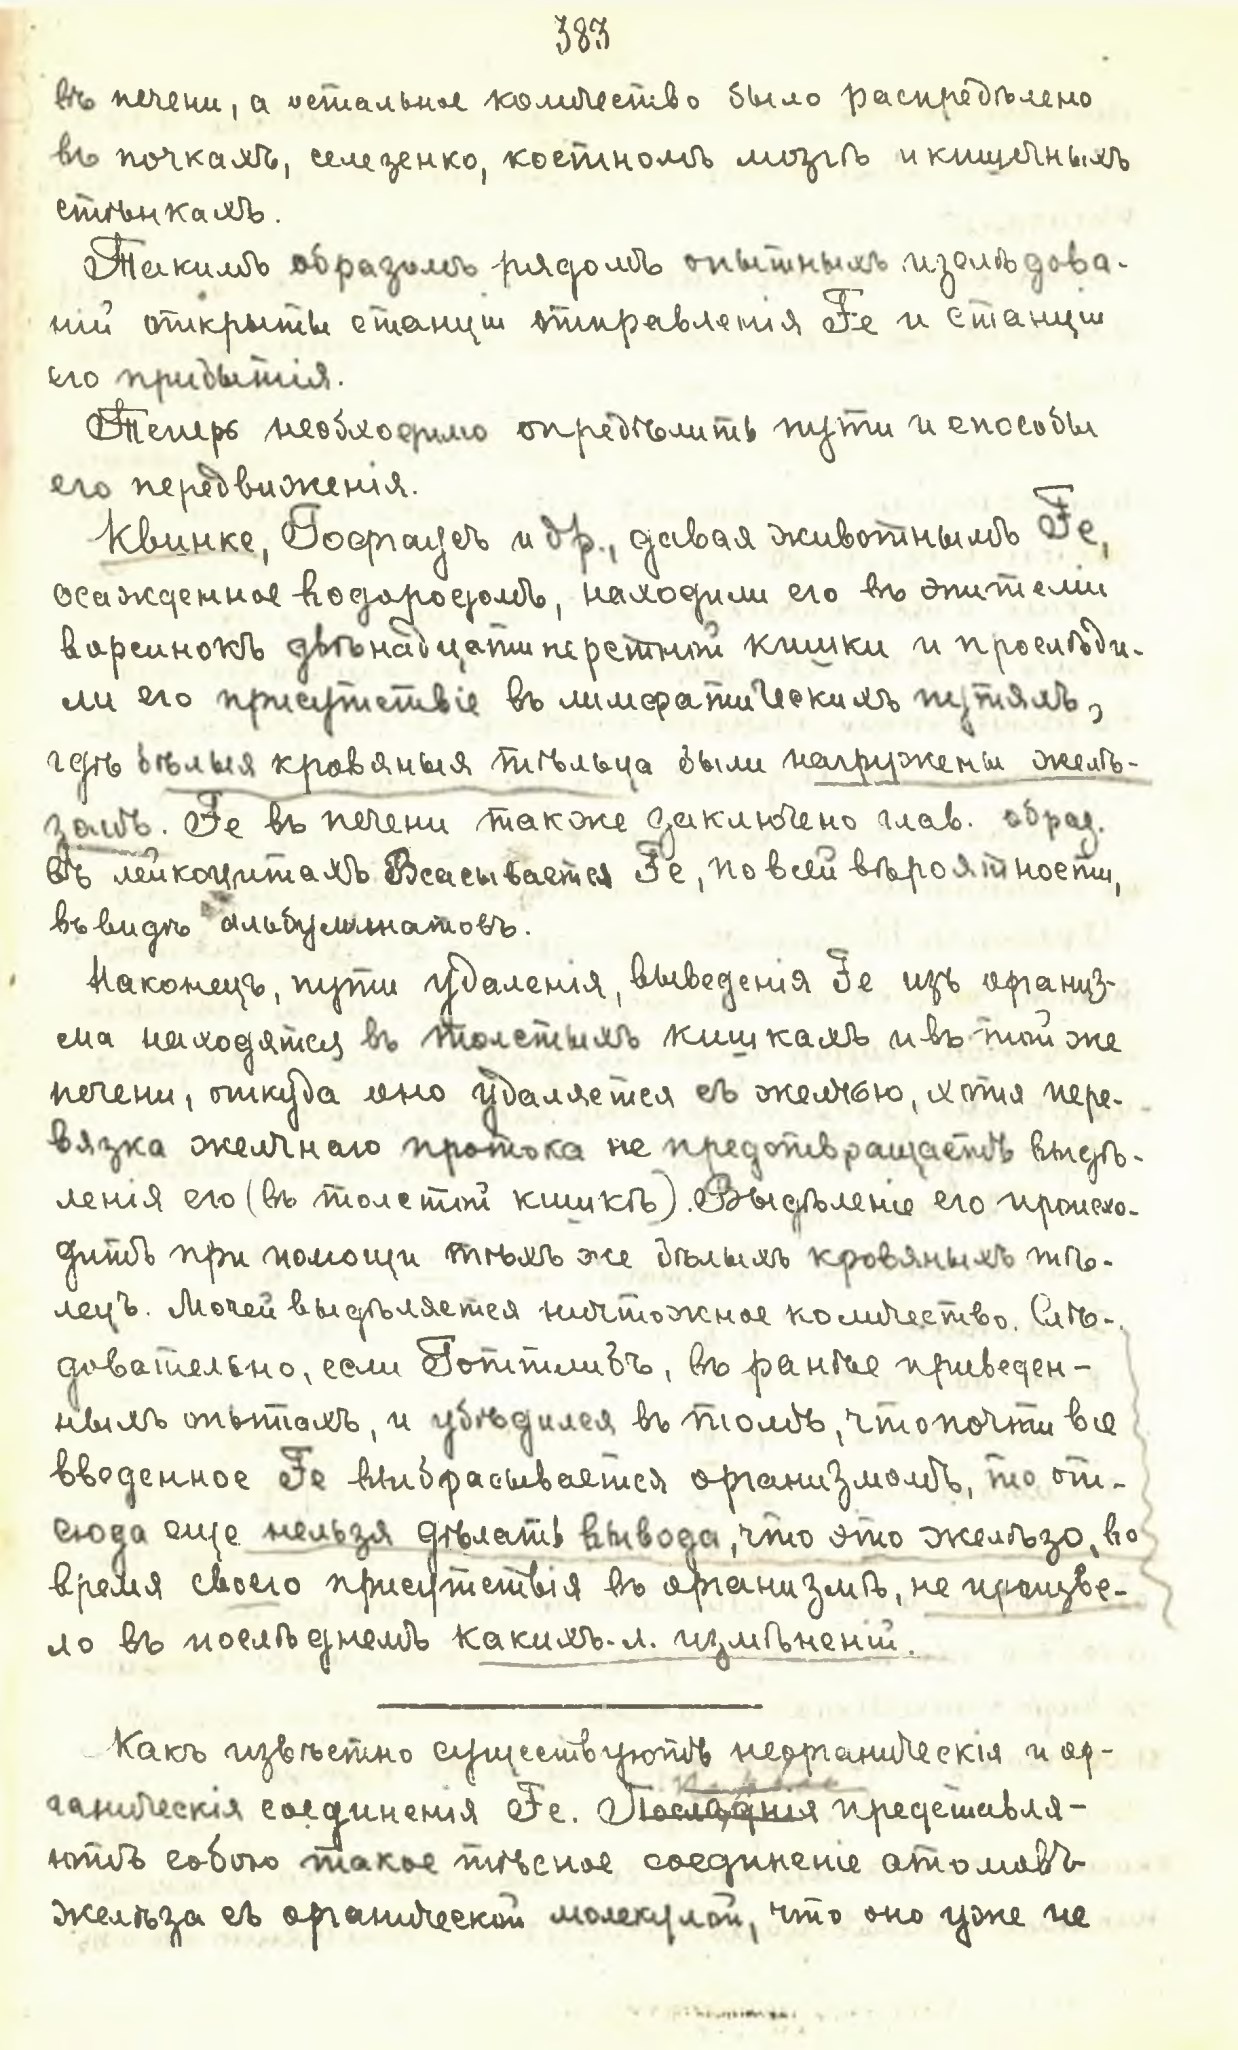 383
въ печени, а остальное количество было распредѣлено
въ почкахъ, селезенкѣ, костномъ мозгѣ и кишечныхъ
стѣнкахъ.
Такимъ образомъ рядомъ опытныхъ изслѣдова-
ній открыты станціи отправленія Fe и станціи
его прибытія.
Теперь необходимо опредѣлить пути и способы
его передвиженія.
Квинке, Госрауеъ и др., давая животнымъ Fe,
осажденное водородомъ, находили его въ эпителіи
ворсинокъ двѣнадцатиперстной кишки и прослѣди-
ли его присутствіе въ лимфатическихъ путяхъ,
гдѣ бѣлыя кровяныя тѣльца были нагружены желѣ-
зомъ. Fe въ печени также заключено глав. образ.
въ лейкоцитахъ Всасывается Fe, по всей вѣроятности,
въ видѣ альбуминатовъ.
Наконецъ, пути удаленія, выведенія Fe изъ организ-
ма находятся въ толстыхъ кишкахъ и въ той же
печени, откуда оно удаляется съ желчью, хотя пере-
вязка желчнаго протока не предотвращаетъ выдѣ-
ленія его (въ толстой кишкѣ). Выдѣленіе его происхо-
дитъ при помощи тѣхъ же бѣлыхъ кровяныхъ тѣ-
лецъ. Мочей выдѣляется ничтожное количество. Слѣ-
довательно, если Готтлибъ, въ ранѣе приведен-
ныхъ опытахъ, и убѣдился въ томъ, что почти все
введенное Fe выбрасывается организмомъ, то от-
сюда еще нельзя дѣлать вывода, что это желѣзо, во
время своего присутствія въ организмѣ, не произве-
ло въ послѣднемъ какихъ-л. измѣненій.
Какъ извѣстно существуютъ неорганическія и ор-
ганическія соединенія Fe. Послѣднія представля-
ютъ собою такое тѣсное соединеніе атомовъ
желѣза съ органической молекулой, что оно уже не